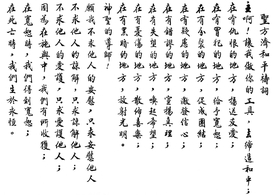 聖方濟和平禱詞
主呵!讓我做你的工具,去締造和平;
在有仇恨的地方,播送友愛;
在有冒犯的地方,給予寬恕;
在有分裂的地方,促成團結;
在有疑慮的地方,激發信心;
在有錯謬的地方,宣揚真理;
在有失望的地方,喚起希望;
在有憂傷的地方,散佈喜樂;
在有黑暗的地方,放射光明。
神聖的導師!
願我不求他人的安慰,只求安慰他人;
不求他人的諒解,只求諒解他人;
不求他人的愛護,只求愛護他人;
因為在施與中,我們有所收穫;
在寬恕時,我們得到寬恕;
在死亡時,我們生於永恆。